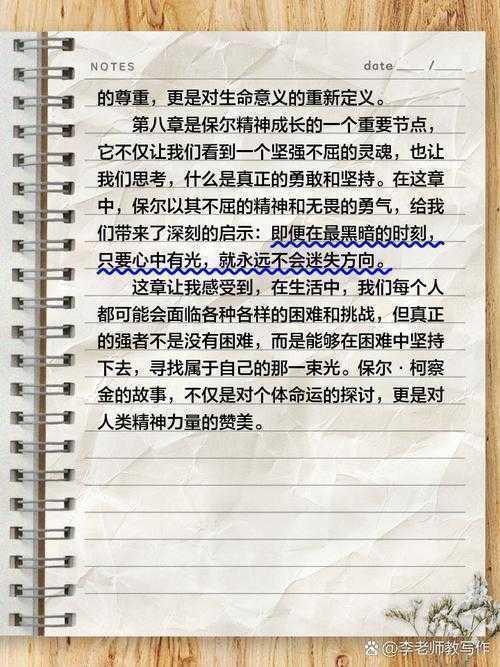 NOTES date /
的尊重，更是对生命意义的重新定义。
第八章是保尔精神成长的一个重要节点，
它不仅让我们看到一个坚强不屈的灵魂，也让
我们思考，什么是真正的勇敢和坚持。在这章
中，保尔以其不屈的精神和无畏的勇气，给我
们带来了深刻的启示：即便在最黑暗的时刻，
只要心中有光，就永远不会迷失方向。
这章让我感受到，在生活中，我们每个人
都可能会面临各种各样的困难和挑战，但真正
的强者不是没有困难，而是能够在困难中坚持
下去，寻找属于自己的那一束光。保尔·柯察
金的故事，不仅是对个体命运的探讨，更是对
人类精神力量的赞美。
李老师教写作